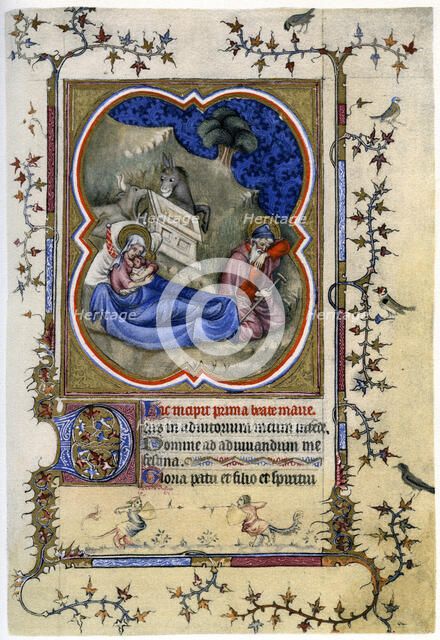 Heritage
Images
Heritage
Images
Heritage
Images
Heritage
Images
Hic incipit prima beate marie.
Deus in adiutorium meum intende.
Domine ad adiuvandum me
festina.
Gloria patri et filio et spiritui